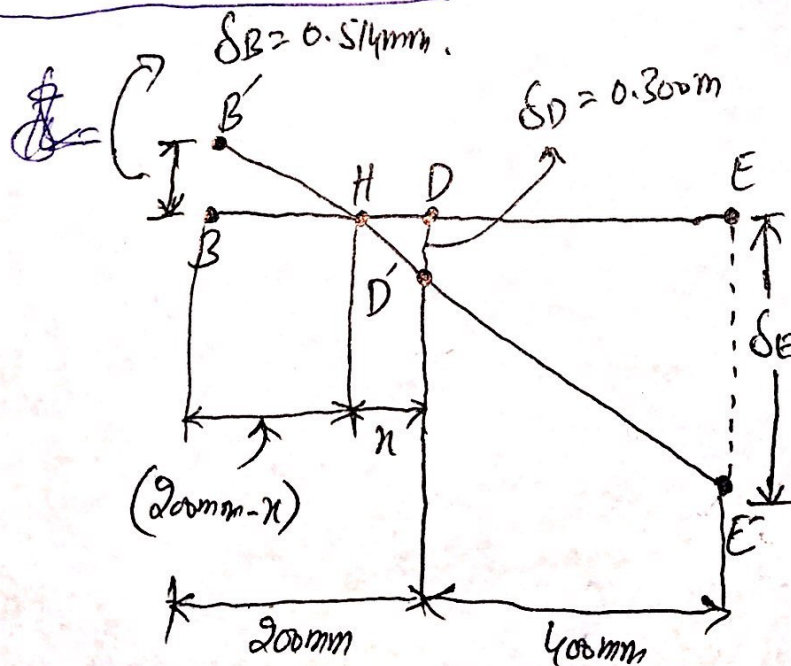 δB = 0.514mm.
δD = 0.300m
B′
H D E
B
D′
δE
x
(200mm-x)
E′
200mm 400mm